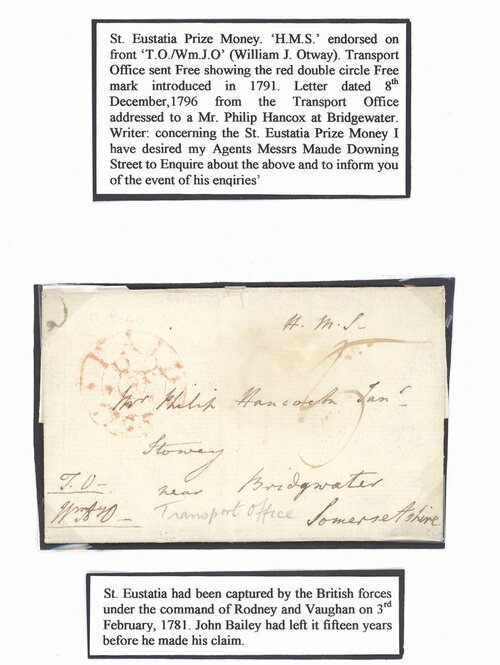 St. Eustatia Prize Money. 'H.M.S.' endorsed on
front 'T.O./Wm.J.O' (William J. Otway). Transport
Office sent Free showing the red double circle Free
mark introduced in 1791. Letter dated 8th
December,1796 from the Transport Office
addressed to a Mr. Philip Hancox at Bridgewater.
Writer: concerning the St. Eustatia Prize Money I
have desired my Agents Messrs Maude Downing
Street to Enquire about the above and to inform you
of the event of his enqiries'
H. M. S-
Mr Philip Hancock Junr
Stowey
T. O-
near Bridgwater
Transport Office
Somersetshire
St. Eustatia had been captured by the British forces
under the command of Rodney and Vaughan on 3rd
February, 1781. John Bailey had left it fifteen years
before he made his claim.